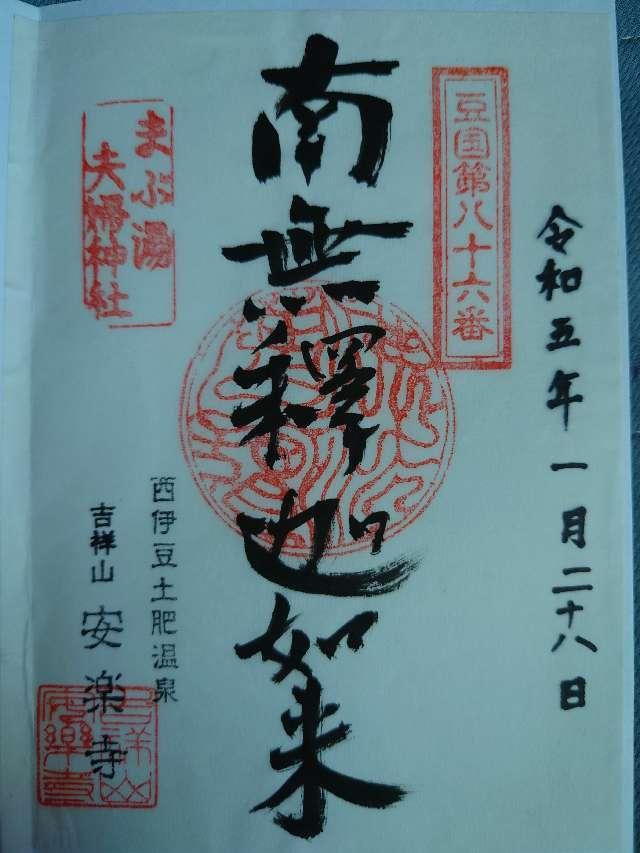 令和五年一月二十八日
豆国第八十六番
南無釋迦如来
まぶ湯
夫婦神社
西伊豆土肥温泉
吉祥山 安楽寺
吉祥山
安樂寺